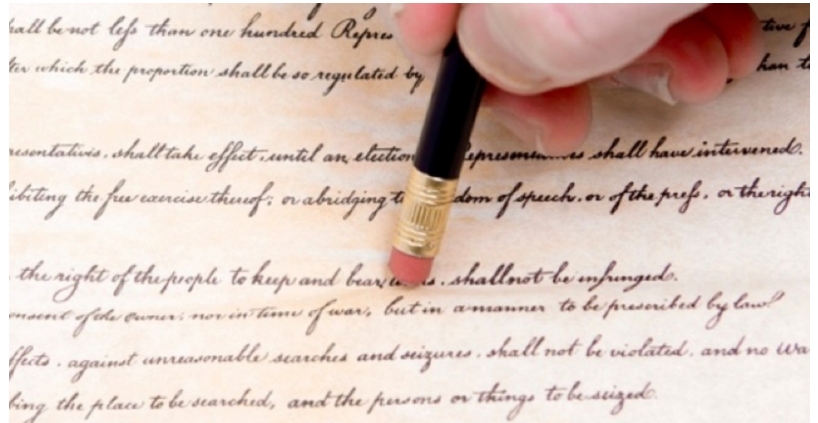 hall be not less than one hundred Repres
ter which the proportion shall be so regulated by han t
resentatives, shall take effect, until an election shall have intervened.
ibiting the free exercise thereof; or abridging dom of speech, or of the press, or the right
the right of the people to keep and bear s, shall not be infringed.
onsent of the Owner, nor in time of war, but in a manner to be prescribed by law.
ffects, against unreasonable searches and seizures, shall not be violated, and no Wa
bing the place to be searched, and the persons or things to be seized.